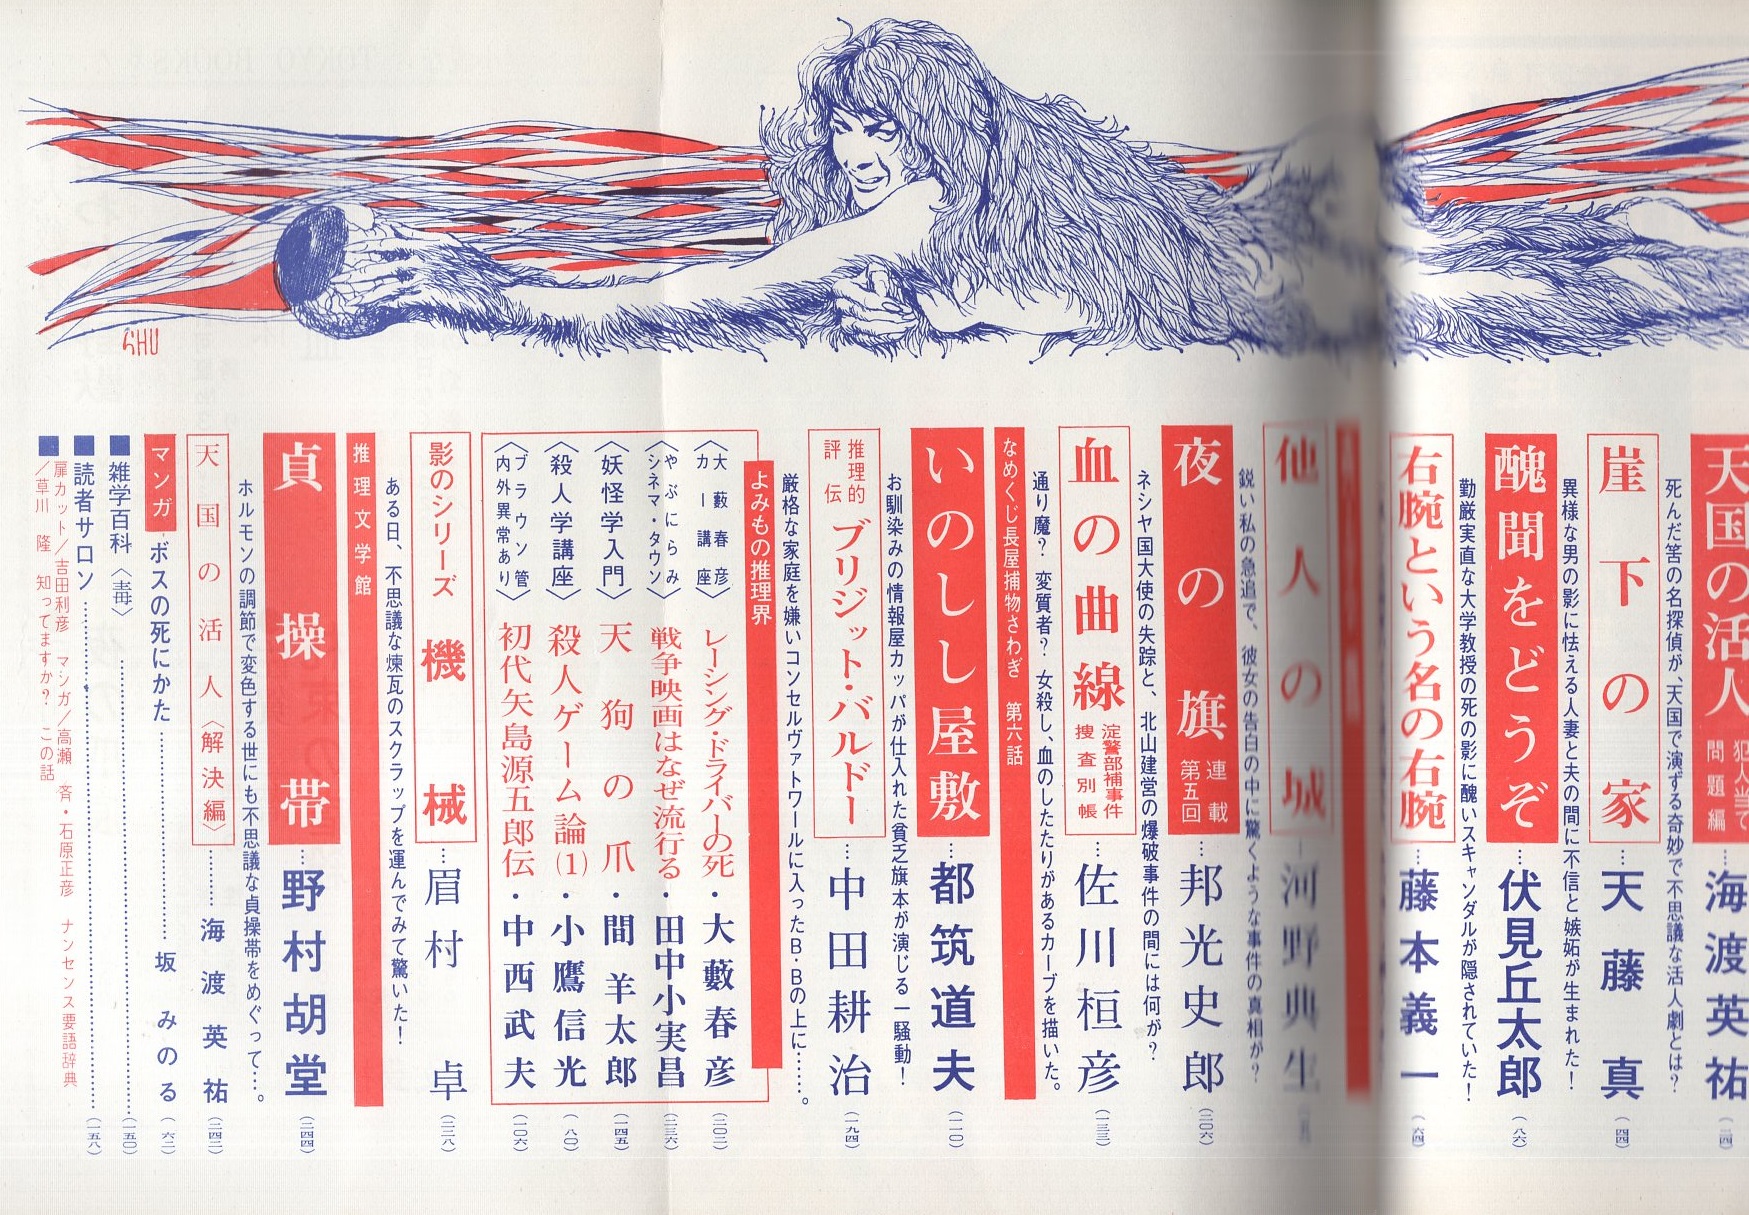 天国の活人
犯人当て
問題編
海渡英祐
(二四)
死んだ筈の名探偵が、天国で演ずる奇妙で不思議な活人劇とは?
崖下の家
天藤真
(四四)
異様な男の影に怯える人妻と夫の間に不信と嫉妬が生まれた!
醜聞をどうぞ
伏見丘太郎
(八六)
勤厳実直な大学教授の死の影に醜いスキャンダルが隠されていた!
右腕という名の右腕
藤本義一
(六四)
他人の城
河野典生
鋭い私の急追で、彼女の告白の中に驚くような事件の真相が?
夜の旗
連載
第五回
邦光史郎
(二〇六)
ネシヤ国大使の失踪と、北山建営の爆破事件の間には何が?
血の曲線
淀警部補事件
捜査別帳
佐川桓彦
(一三三)
通り魔? 変質者? 女殺し、血のしたたりがあるカーブを描いた。
なめくじ長屋捕物さわぎ 第六話
いのしし屋敷
都筑道夫
(一一〇)
お馴染みの情報屋カッパが仕入れた貧乏旗本が演じる一騒動!
推理的
評伝
ブリジット・バルドー
中田耕治
(一九四)
厳格な家庭を嫌いコンセルヴァトワールに入ったB・Bの上に……。
よみもの推理界
〈大藪春彦
カー講座〉
レーシング・ドライバーの死・大藪春彦
(二〇二)
〈やぶにらみ
シネマ・タウン〉
戦争映画はなぜ流行る・田中小実昌
(二三六)
〈妖怪学入門〉
天狗の爪・間羊太郎
(一四五)
〈殺人学講座〉
殺人ゲーム論(1)・小鷹信光
(八〇)
〈ブラウン管
内外異常あり〉
初代矢島源五郎伝・中西武夫
(一〇六)
影のシリーズ
機械
眉村卓
(二二八)
ある日、不思議な煉瓦のスクラップを運んでみて驚いた!
推理文学館
貞操帯
野村胡堂
(二四四)
ホルモンの調節で変色する世にも不思議な貞操帯をめぐって…。
天国の活人〈解決編〉
海渡英祐
(二四二)
マンガ
ボスの死にかた
坂みのる
(六二)
■雑学百科〈毒〉
(一五〇)
■読者サロン
(一五八)
■扉カット/吉田利彦 マンガ/高瀬斉・石原正彦 ナンセンス要語辞典
/草川隆 知ってますか? この話
SHU